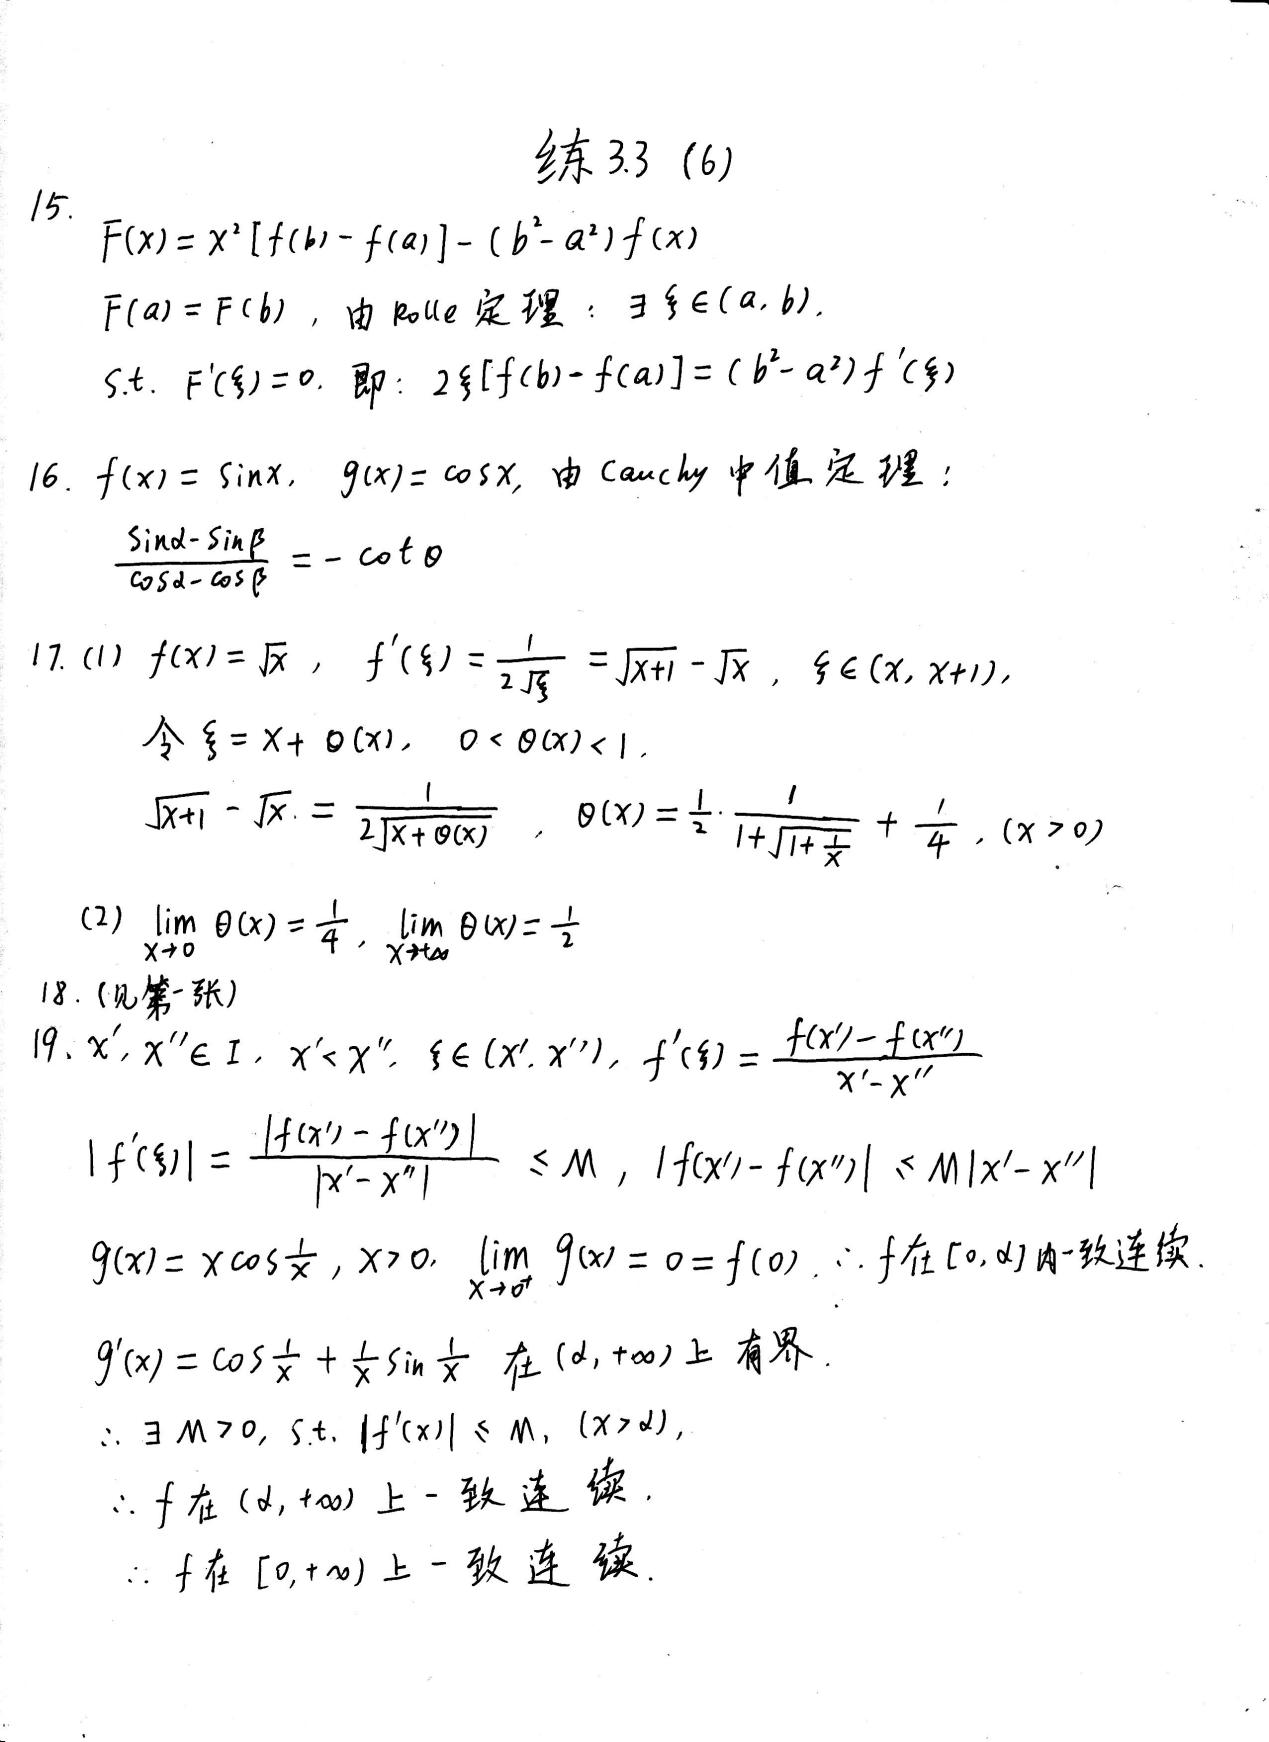 练3.3 (6)
15.
F(x) = x² [f(b) - f(a)] - (b² - a²) f(x)
F(a) = F(b), 由 Rolle 定理: ∃ ξ ∈ (a, b),
s.t. F'(ξ) = 0. 即: 2ξ[f(b) - f(a)] = (b² - a²) f'(ξ)
16. f(x) = sinx, g(x) = cosx, 由 Cauchy 中值定理:
(sinα - sinβ)/(cosα - cosβ) = - cot θ
17. (1) f(x) = √x, f'(ξ) = 1/(2√ξ) = √(x+1) - √x, ξ ∈ (x, x+1),
令 ξ = x + θ(x), 0 < θ(x) < 1.
√(x+1) - √x = 1/(2√(x+θ(x))), θ(x) = 1/2 · 1/(1+√(1+1/x)) + 1/4, (x > 0)
(2) lim_{x→0} θ(x) = 1/4, lim_{x→+∞} θ(x) = 1/2
18. (见第一张)
19. x', x'' ∈ I, x' < x'', ξ ∈ (x', x''), f'(ξ) = (f(x') - f(x''))/(x' - x'')
|f'(ξ)| = |f(x') - f(x'')|/|x' - x''| ≤ M, |f(x') - f(x'')| ≤ M|x' - x''|
g(x) = x cos 1/x, x > 0, lim_{x→0⁺} g(x) = 0 = f(0). ∴ f在[0, α]内一致连续.
g'(x) = cos 1/x + 1/x sin 1/x 在 (α, +∞) 上有界.
∴ ∃ M > 0, s.t. |f'(x)| ≤ M, (x > α),
∴ f在 (α, +∞) 上一致连续.
∴ f在 [0, +∞) 上一致连续.